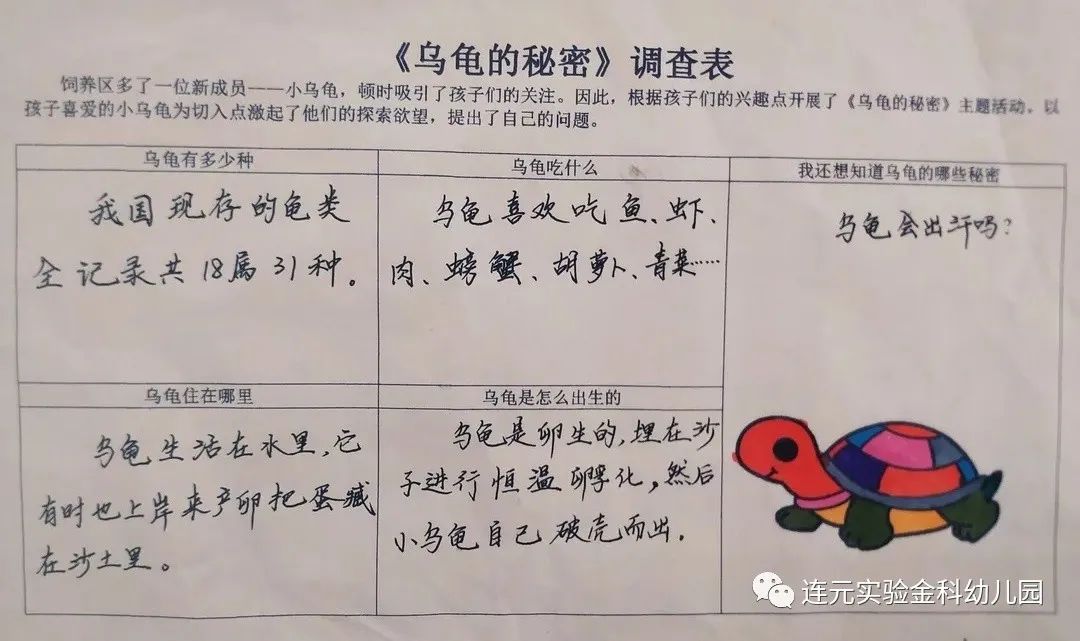 《乌龟的秘密》调查表
饲养区多了一位新成员——小乌龟，顿时吸引了孩子们的关注。因此，根据孩子们的兴趣点开展了《乌龟的秘密》主题活动，以
孩子喜爱的小乌龟为切入点激起了他们的探索欲望，提出了自己的问题。
乌龟有多少种
我国现存的龟类
全记录共18属31种。
乌龟吃什么
乌龟喜欢吃鱼、虾、
肉、螃蟹、胡萝卜、青菜……
我还想知道乌龟的哪些秘密
乌龟会出汗吗？
乌龟住在哪里
乌龟生活在水里，它
有时也上岸来产卵把蛋藏
在沙土里。
乌龟是怎么出生的
乌龟是卵生的，埋在沙
子进行恒温孵化，然后
小乌龟自己破壳而出．
连元实验金科幼儿园